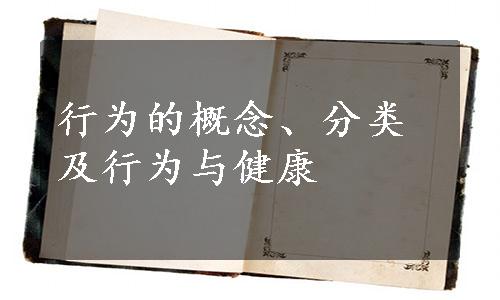 行为的概念、分类
及行为与健康